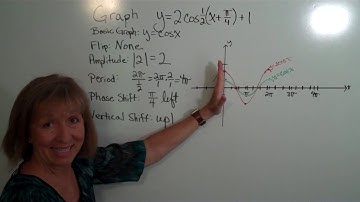 Graph y=2cos½(x+π/4)+1
Basic Graph: y=cosx
Flip: None
Amplitude: |2|=2
Period: 2π/½ = 2π/1 · 2/1 = 4π
Phase Shift: π/4 left
Vertical Shift: up 1
π 2π 3π 4π